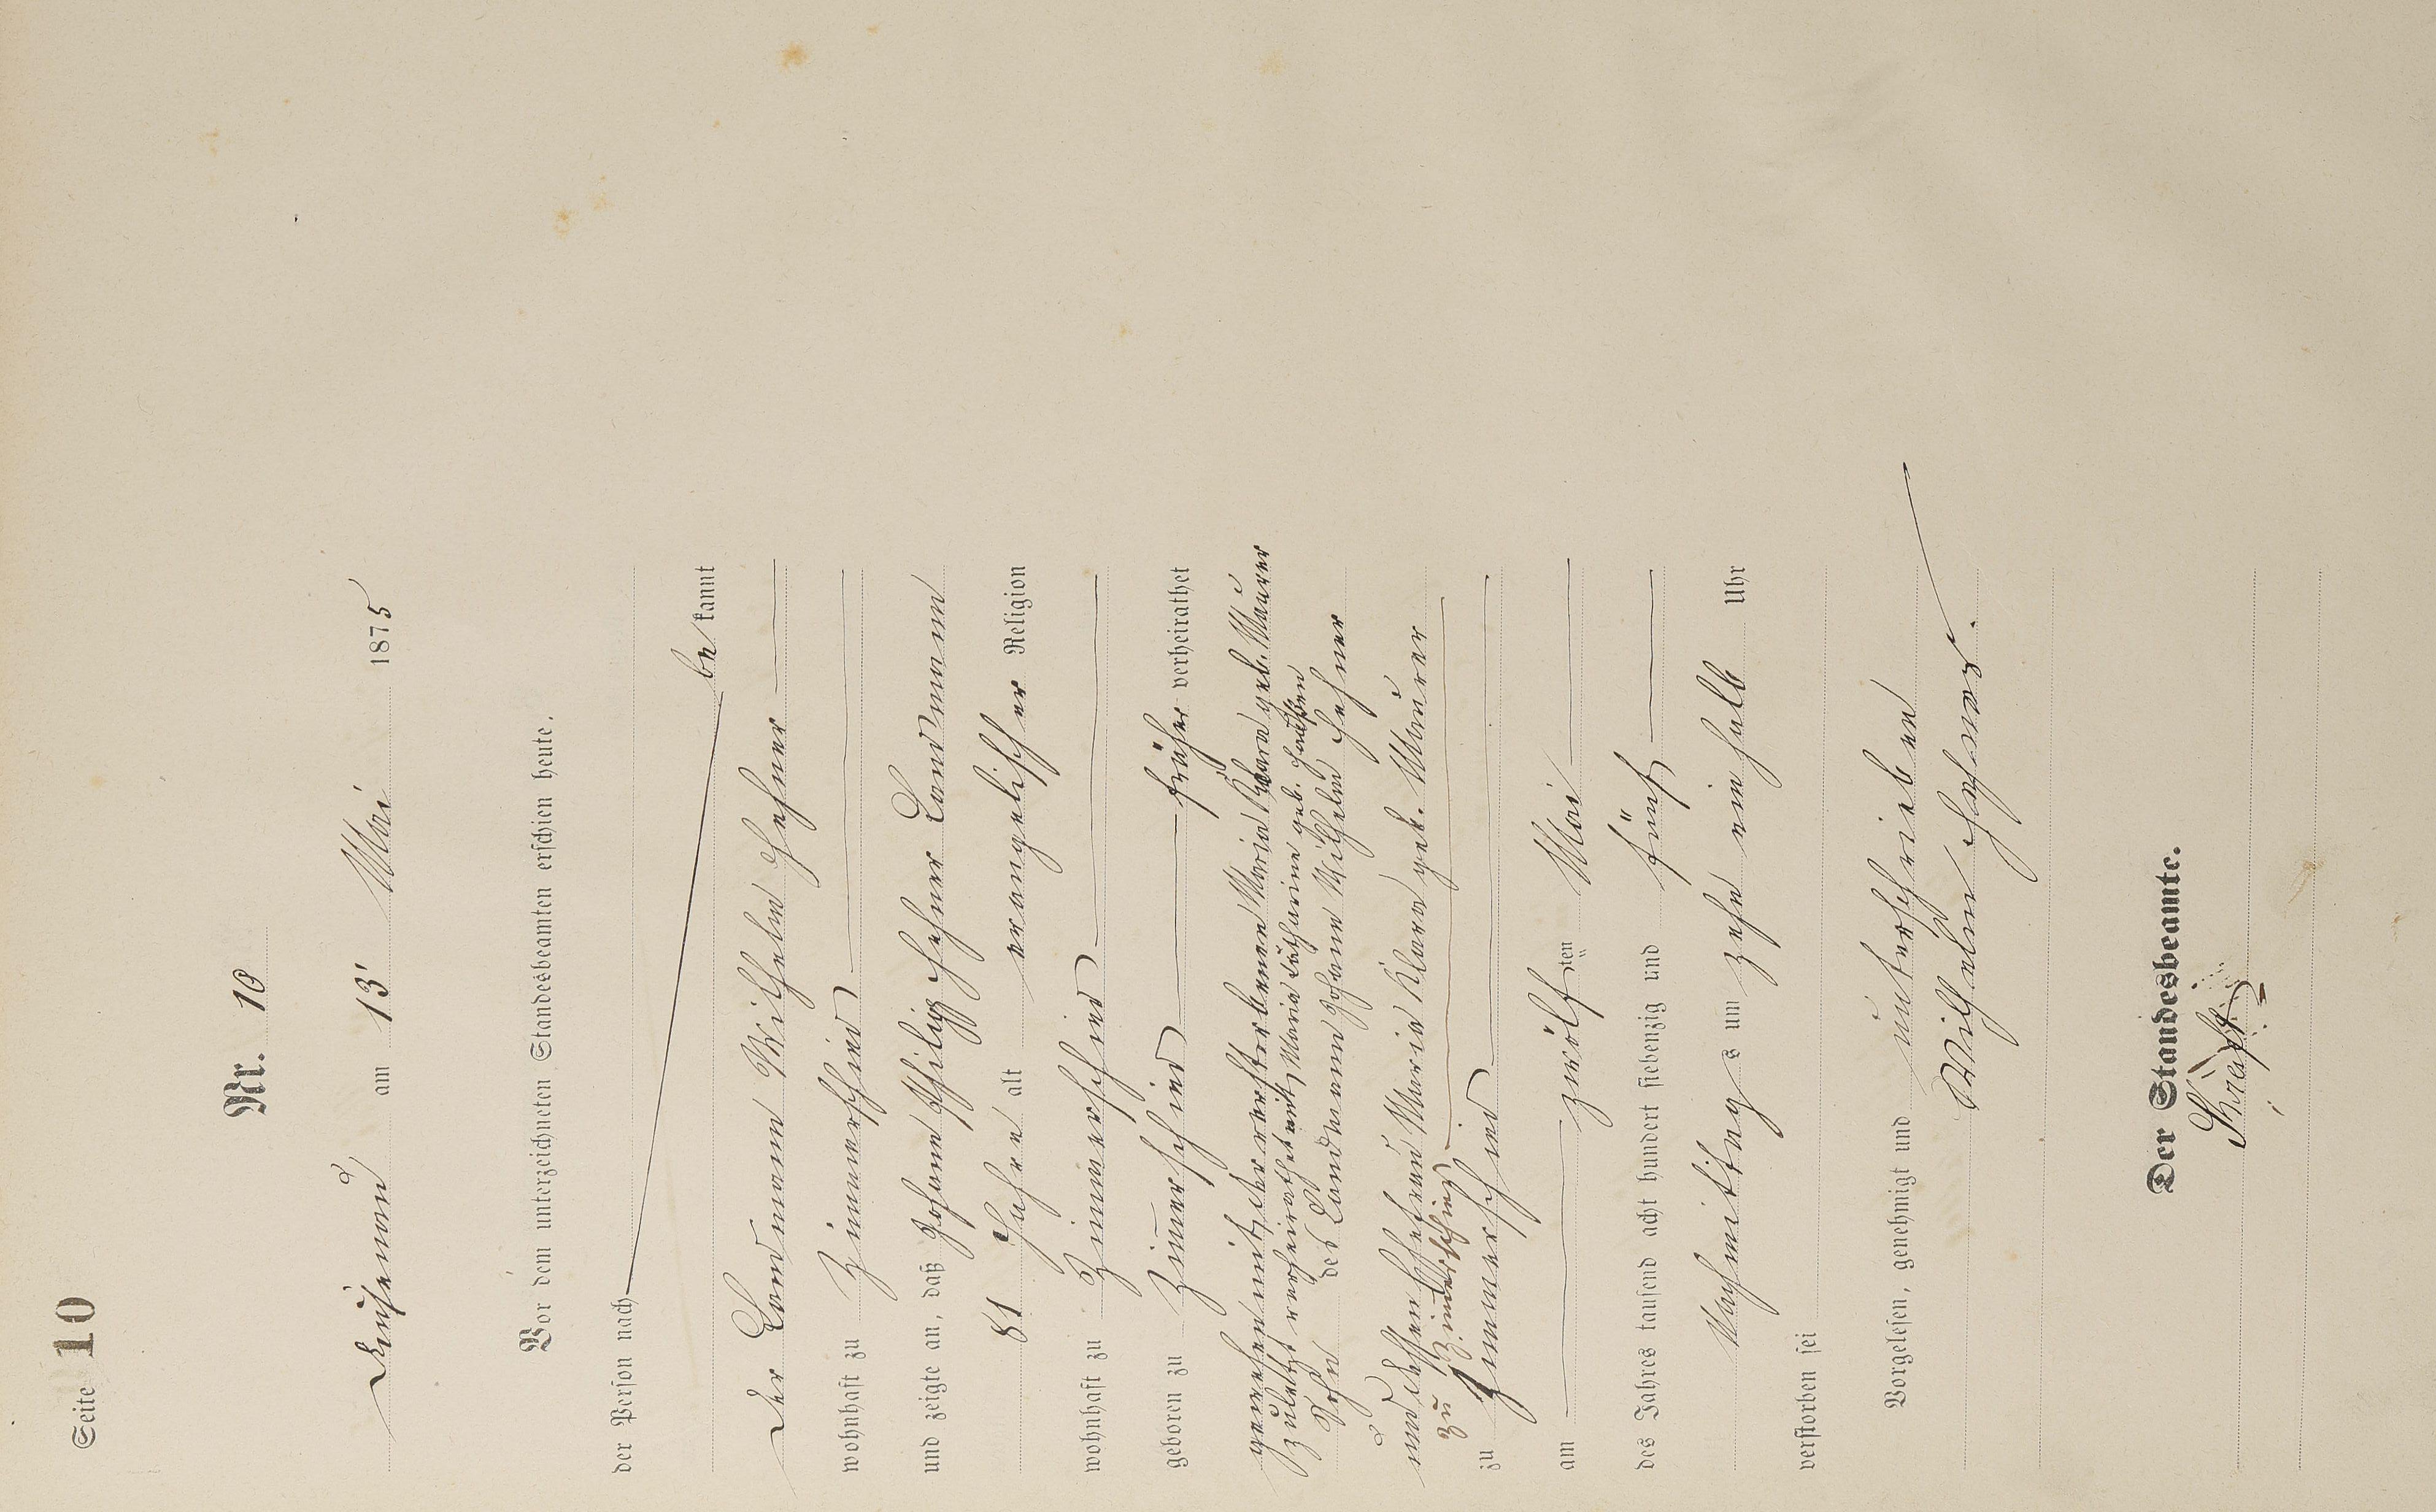 Seite 10
Nr. 10
am 13 Mai 1875
Vor dem unterzeichneten Standesbeamten erschien heute,
der Person nach
bekannt
der Landmann Wilhelm Hehner
wohnhaft zu Zimmerschied
und zeigte an, daß Johann Philipp Hehner Landmann
81 Jahre alt evangelischer Religion
wohnhaft zu Zimmerschied
geboren zu Zim̄erschied früher verheirathet
gewesen mit der verstorbenen Maria Klara geb. Maurer
zuletzt verheirathet mit Maria Catharine geb.
Sohn des Landmann Johann Wilhelm Hehner
und dessen Ehefrau Maria Klara geb. Maurer
zu Zimmerschied
zu Zimmerschied
am zwölften Mai
des Jahres tausend acht hundert siebenzig und fünf
Nachmittags um zehn ein halb Uhr
verstorben sei
Vorgelesen, genehmigt und unterschrieben
Wilhelm Hehner.
Der Standesbeamte.